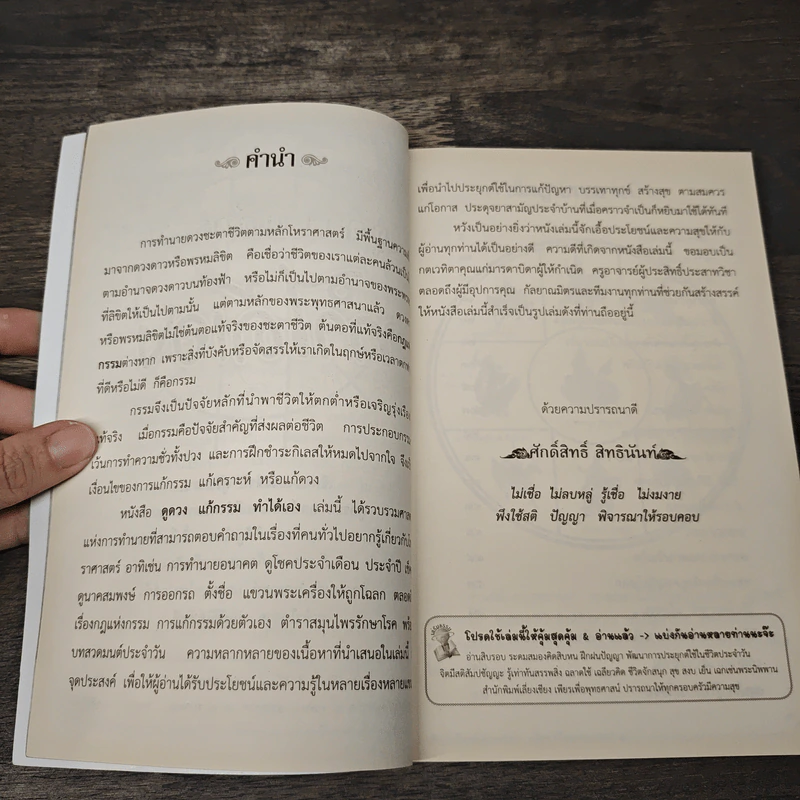 คำนำ
การทำนายดวงชะตาชีวิตตามหลักโหราศาสตร์ มีพื้นฐานความ
มาจากดวงดาวหรือพรหมลิขิต คือเชื่อว่าชีวิตของเราแต่ละคนล้วน
ตามอำนาจดวงดาวบนท้องฟ้า หรือไม่ก็เป็นไปตามอำนาจของพระ
ที่ลิขิตให้เป็นไปตามนั้น แต่ตามหลักของพระพุทธศาสนาแล้ว
หรือพรหมลิขิตไม่ใช่ต้นตอแท้จริงของชะตาชีวิต ต้นตอที่แท้จริงคือ
กรรมต่างหาก เพราะสิ่งที่บังคับหรือจัดสรรให้เราเกิดในฤกษ์หรือเวลา
ที่ดีหรือไม่ดี ก็คือกรรม
กรรมจึงเป็นปัจจัยหลักที่นำพาชีวิตให้ตกต่ำหรือเจริญรุ่งเรือง
แท้จริง เมื่อกรรมคือปัจจัยสำคัญที่ส่งผลต่อชีวิต การประกอบกรรม
เว้นการทำความชั่วทั้งปวง และการฝึกชำระกิเลสให้หมดไปจากใจ
เงื่อนไขของการแก้กรรม แก้เคราะห์ หรือแก้ดวง
หนังสือ ดูดวง แก้กรรม ทำได้เอง เล่มนี้ ได้รวบรวม
แห่งการทำนายที่สามารถตอบคำถามในเรื่องที่คนทั่วไปอยากรู้เกี่ยวกับ
ราศาสตร์ อาทิเช่น การทำนายอนาคต ดูโชคประจำเดือน ประจำปี
ดูนาคสมพงษ์ การออกรถ ตั้งชื่อ แขวนพระเครื่องให้ถูกโฉลก ตลอด
เรื่องกฎแห่งกรรม การแก้กรรมด้วยตัวเอง ตำราสมุนไพรรักษาโรค
บทสวดมนต์ประจำวัน ความหลากหลายของเนื้อหาที่นำเสนอในเล่มนี้
จุดประสงค์ เพื่อให้ผู้อ่านได้รับประโยชน์และความรู้ในหลายเรื่องหลาย
เพื่อนำไปประยุกต์ใช้ในการแก้ปัญหา บรรเทาทุกข์ สร้างสุข ตามสมควร
แก่โอกาส ประดุจยาสามัญประจำบ้านที่เมื่อคราวจำเป็นก็หยิบมาใช้ได้ทันที
หวังเป็นอย่างยิ่งว่าหนังสือเล่มนี้จักเอื้อประโยชน์และความสุขให้กับ
ผู้อ่านทุกท่านได้เป็นอย่างดี ความดีที่เกิดจากหนังสือเล่มนี้ ขอมอบเป็น
กตเวทิตาคุณแก่มารดาบิดาผู้ให้กำเนิด ครูอาจารย์ผู้ประสิทธิ์ประสาทวิชา
ตลอดถึงผู้มีอุปการคุณ กัลยาณมิตรและทีมงานทุกท่านที่ช่วยกันสร้างสรรค์
ให้หนังสือเล่มนี้สำเร็จเป็นรูปเล่มดังที่ท่านถืออยู่นี้
ด้วยความปรารถนาดี
ศักดิ์สิทธิ์ สิทธินันท์
ไม่เชื่อ ไม่ลบหลู่ รู้เชื่อ ไม่งมงาย
พึงใช้สติ ปัญญา พิจารณาให้รอบคอบ
โปรดใช้เล่มนี้ให้คุ้มสุดคุ้ม & อ่านแล้ว -> แบ่งกันอ่านหลายท่านนะจ๊ะ
อ่านสิบรอบ ระดมสมองคิดสิบหน ฝึกฝนปัญญา พัฒนาการประยุกต์ใช้ในชีวิตประจำวัน
จิตมีสติสัมปชัญญะ รู้เท่าทันสรรพสิ่ง ฉลาดใช้ เฉลียวคิด ชีวิตจักสนุก สุข สงบ เย็น เฉกเช่นพระนิพพาน
สำนักพิมพ์เลี่ยงเชียง เพียรเพื่อพุทธศาสน์ ปรารถนาให้ทุกครอบครัวมีความสุข